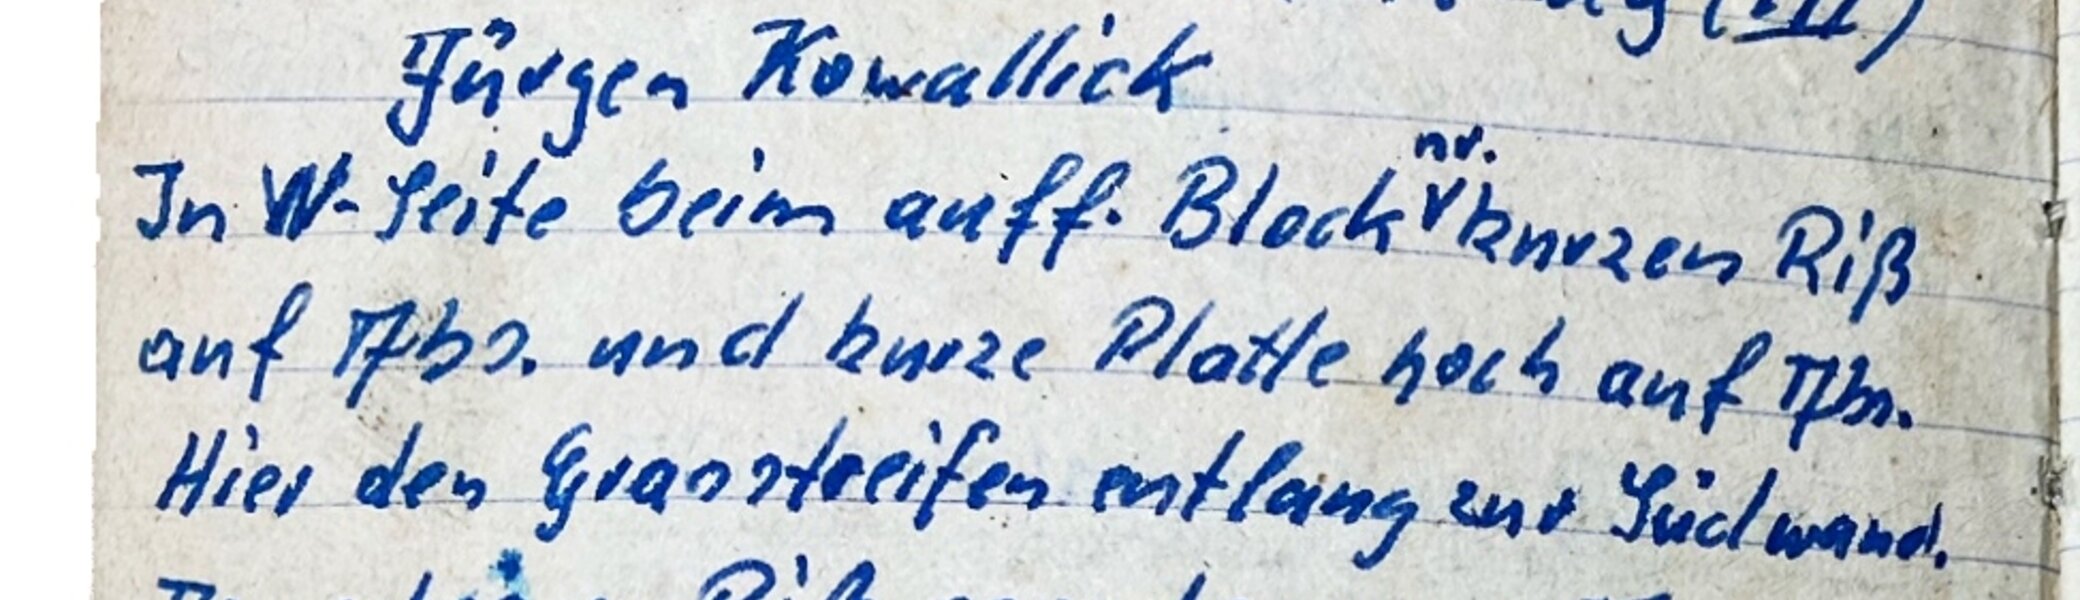 (III)
Jürgen Kowallick
In W-Seite beim auff. Block nr. kurzen Riß
auf Abs. und kurze Platte hoch auf Abs.
Hier den Grasstreifen entlang zur Südwand.